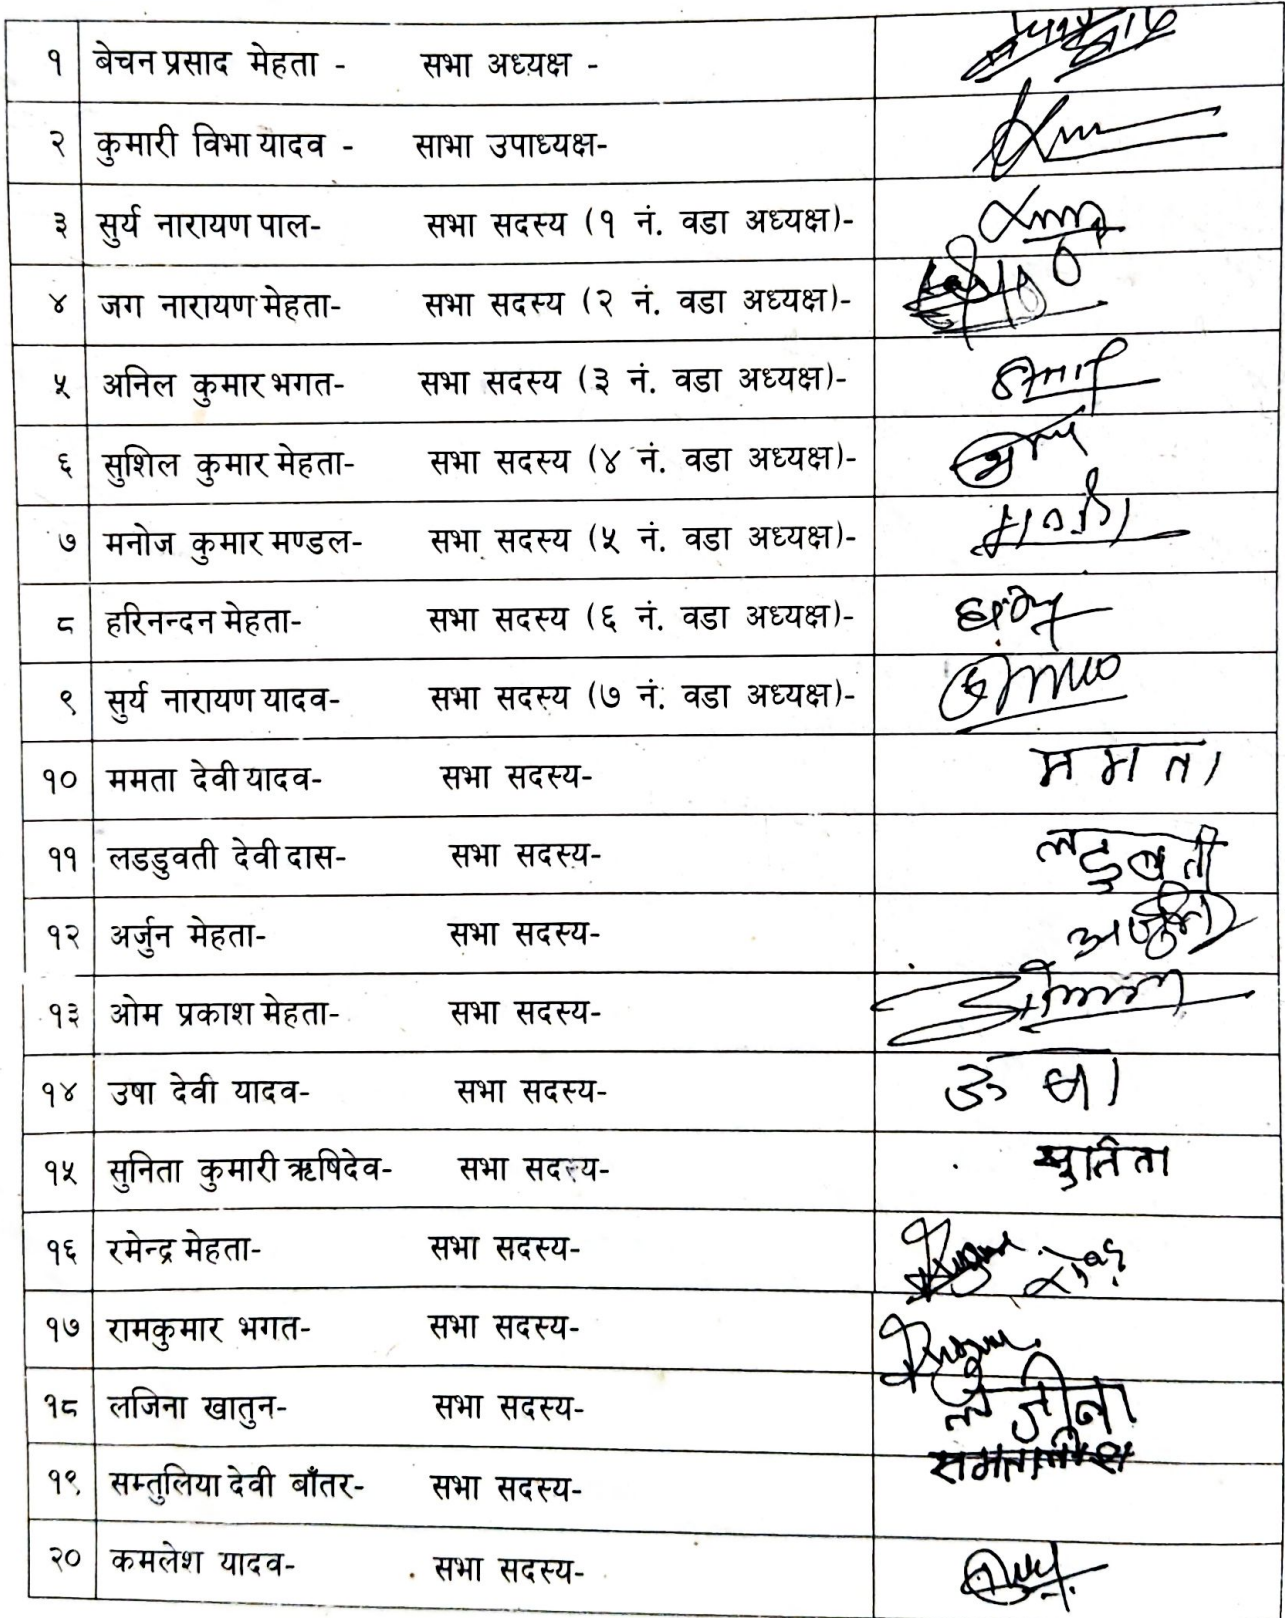 १ बेचन प्रसाद मेहता - सभा अध्यक्ष -
२ कुमारी विभा यादव - साभा उपाध्यक्ष-
३ सुर्य नारायण पाल- सभा सदस्य (१ नं. वडा अध्यक्ष)-
४ जग नारायण मेहता- सभा सदस्य (२ नं. वडा अध्यक्ष)-
५ अनिल कुमार भगत- सभा सदस्य (३ नं. वडा अध्यक्ष)-
६ सुशिल कुमार मेहता- सभा सदस्य (४ नं. वडा अध्यक्ष)-
७ मनोज कुमार मण्डल- सभा सदस्य (५ नं. वडा अध्यक्ष)-
८ हरिनन्दन मेहता- सभा सदस्य (६ नं. वडा अध्यक्ष)-
९ सुर्य नारायण यादव- सभा सदस्य (७ नं. वडा अध्यक्ष)-
१० ममता देवी यादव- सभा सदस्य- ममता
११ लडडुवती देवी दास- सभा सदस्य- लडुवती
१२ अर्जुन मेहता- सभा सदस्य- अर्जुन
१३ ओम प्रकाश मेहता- सभा सदस्य-
१४ उषा देवी यादव- सभा सदस्य- ऊषा
१५ सुनिता कुमारी ऋषिदेव- सभा सदस्य- सुनिता
१६ रमेन्द्र मेहता- सभा सदस्य-
१७ रामकुमार भगत- सभा सदस्य-
१८ लजिना खातुन- सभा सदस्य- लजीना
१९ सम्तुलिया देवी बाँतर- सभा सदस्य-
२० कमलेश यादव- सभा सदस्य-